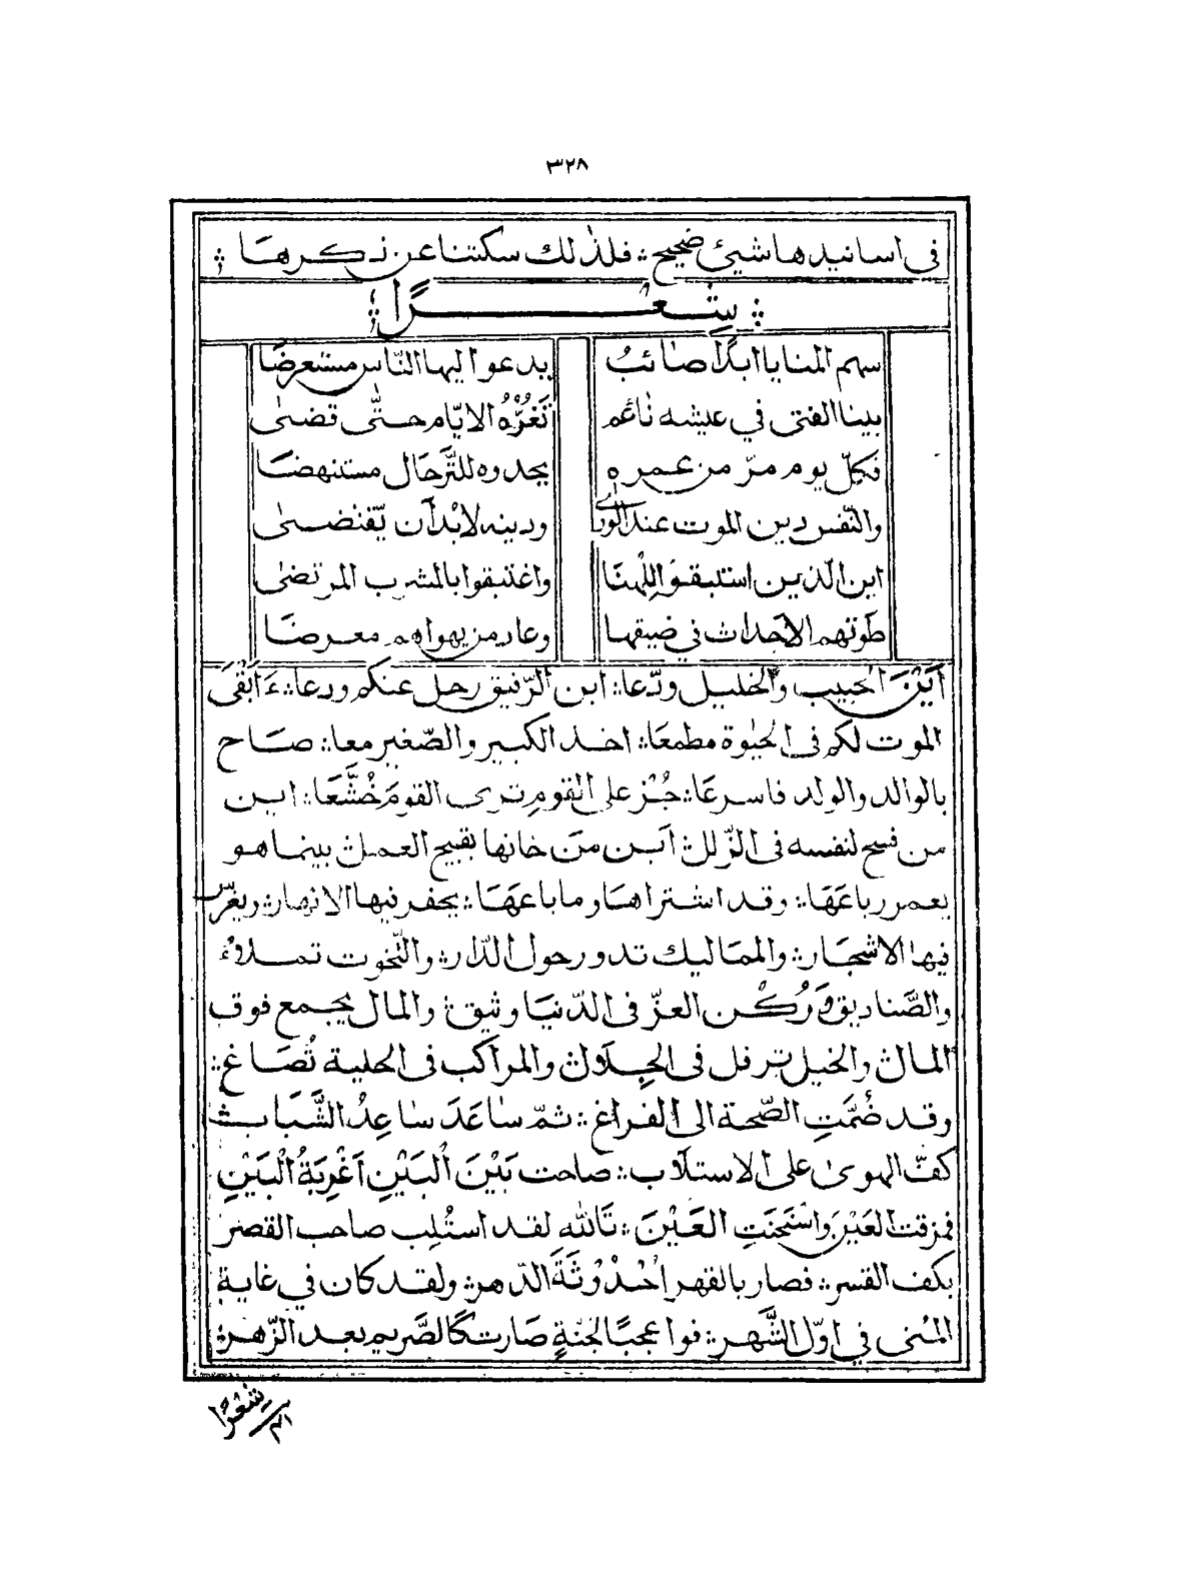 ٣٢٨
في اسانيدها شيئ صحيح ؞ فلذلك سكتنا عن ذكرها ؞
؞ شعرًا ؞
سهم المنايا ابدًا صائبُ يدعوا اليها النّاس مستعرضا
بينا الفتى في عيشه ناعم تَغُرُّهُ الايّام حتّى قضى
فكلّ يوم مرّ من عمره يحدوه للتَّرحَال مستنهضَا
والنّفس دين الموت عند الورى ودينه لابدّ أن يّقتضى
اين الّذين استبقوا للهنَا واغتبقوا بالمشرب المرتضى
طوتهم الاجداث في ضيقها وعاد من يهواهم معرضا
أَيْنَ الحبيب والخليل ودّعا ؞ اين الرّفيق رحل عنكم ودعا ؞ ءَابْقَى
الموت لكم في الحيٰوة مطمعَا ؞ اخذ الكبير والصّغير معا ؞ صاح
بالوالد والولد فاسرعَا ؞ جُزْ على القوم ترى القومَ خُشَّعَا ؞ اين
من فسح لنفسه في الزّلل ؞ أين من خانها بقبيح العمل ؞ بينما هو
يعمر رباعَهَا ؞ وقد اشتراها وما باعهَا ؞ يحفر فيها الانهار ؞ ويغرّس
فيها الاشجَار ؞ والممَاليك تدور حول الدّار ؞ والتّخوت تملاؤ
والصَّناديق وَرُكْن العزّ في الدّنيَا وثيق ؞ والمال يجمع فوق
المال ؞ والخيل ترفل في الجِلال ؞ والمراكب في الحلية تُصَاغ ؞
وقد ضُمَّتِ الصّحة الى الفراغ ؞ ثمّ ساعَدَ ساعِدُ الشَّبَاب ؞
كفّ الهوىٰ على الاستلاب ؞ صاحت بَيْنَ البَيْنِ اَغْرِبَةُ الْبَيْنِ
فمزقت العَيْنَ وَاسْخَنَتِ العَيْنَ ؞ تَاللهِ لقد استُلِب صاحب القصر
بكف القسر ؞ فصار بالقهر اُحْدُوْثَةَ الدّهر ؞ ولقد كان في غاية
المُنى في اوّل الشَّهر ؞ فوا عجبًا لجَنَّةٍ صَارت كَالصَّريم بعد الزّهر ؞
شعرًا